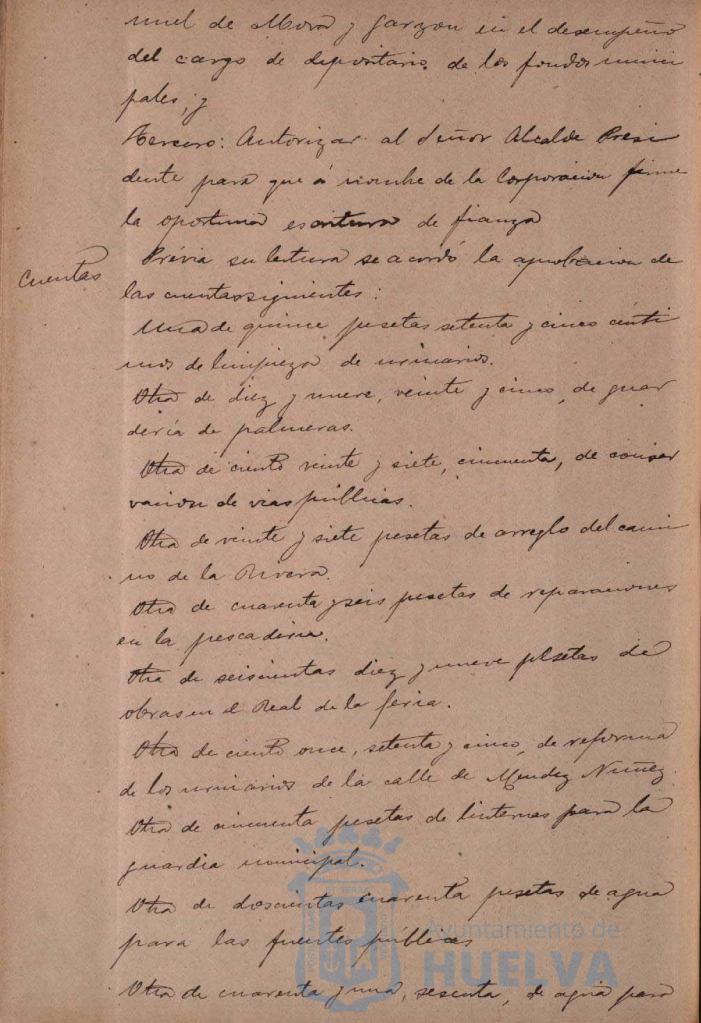 nuel de Mora y Garzon en el desempeño
del cargo de depositario de los fondos munici
pales; y
Tercero: Autorizar al Señor Alcalde Presi
dente para que á nombre de la Corporacion firme
la oportuna escritura de fianza
Cuentas
Prévia su lectura se acordó la aprobacion de
las cuentas siguientes:
Una de quince pesetas setenta y cinco cénti
mos de limpieza de urinarios.
Otra de diez y nueve, veinte y cinco, de guar
dería de palmeras.
Otra de ciento veinte y siete, cincuenta, de conser
vacion de vias públicas.
Otra de veinte y siete pesetas de arreglo del cami
no de la Rivera.
Otra de cuarenta y seis pesetas de reparaciones
en la pescaderia.
Otra de seiscientas diez y nueve pesetas de
obras en el Real de la feria.
Otra de ciento once, setenta y cinco, de reforma
de los urinarios de la calle de Mendez Nuñez.
Otra de cincuenta pesetas de linternas para la
guardia municipal.
Otra de doscientas cuarenta pesetas de agua
para las fuentes publicas
Otra de cuarenta y una, sesenta, de agua para
Ayuntamiento de
HUELVA